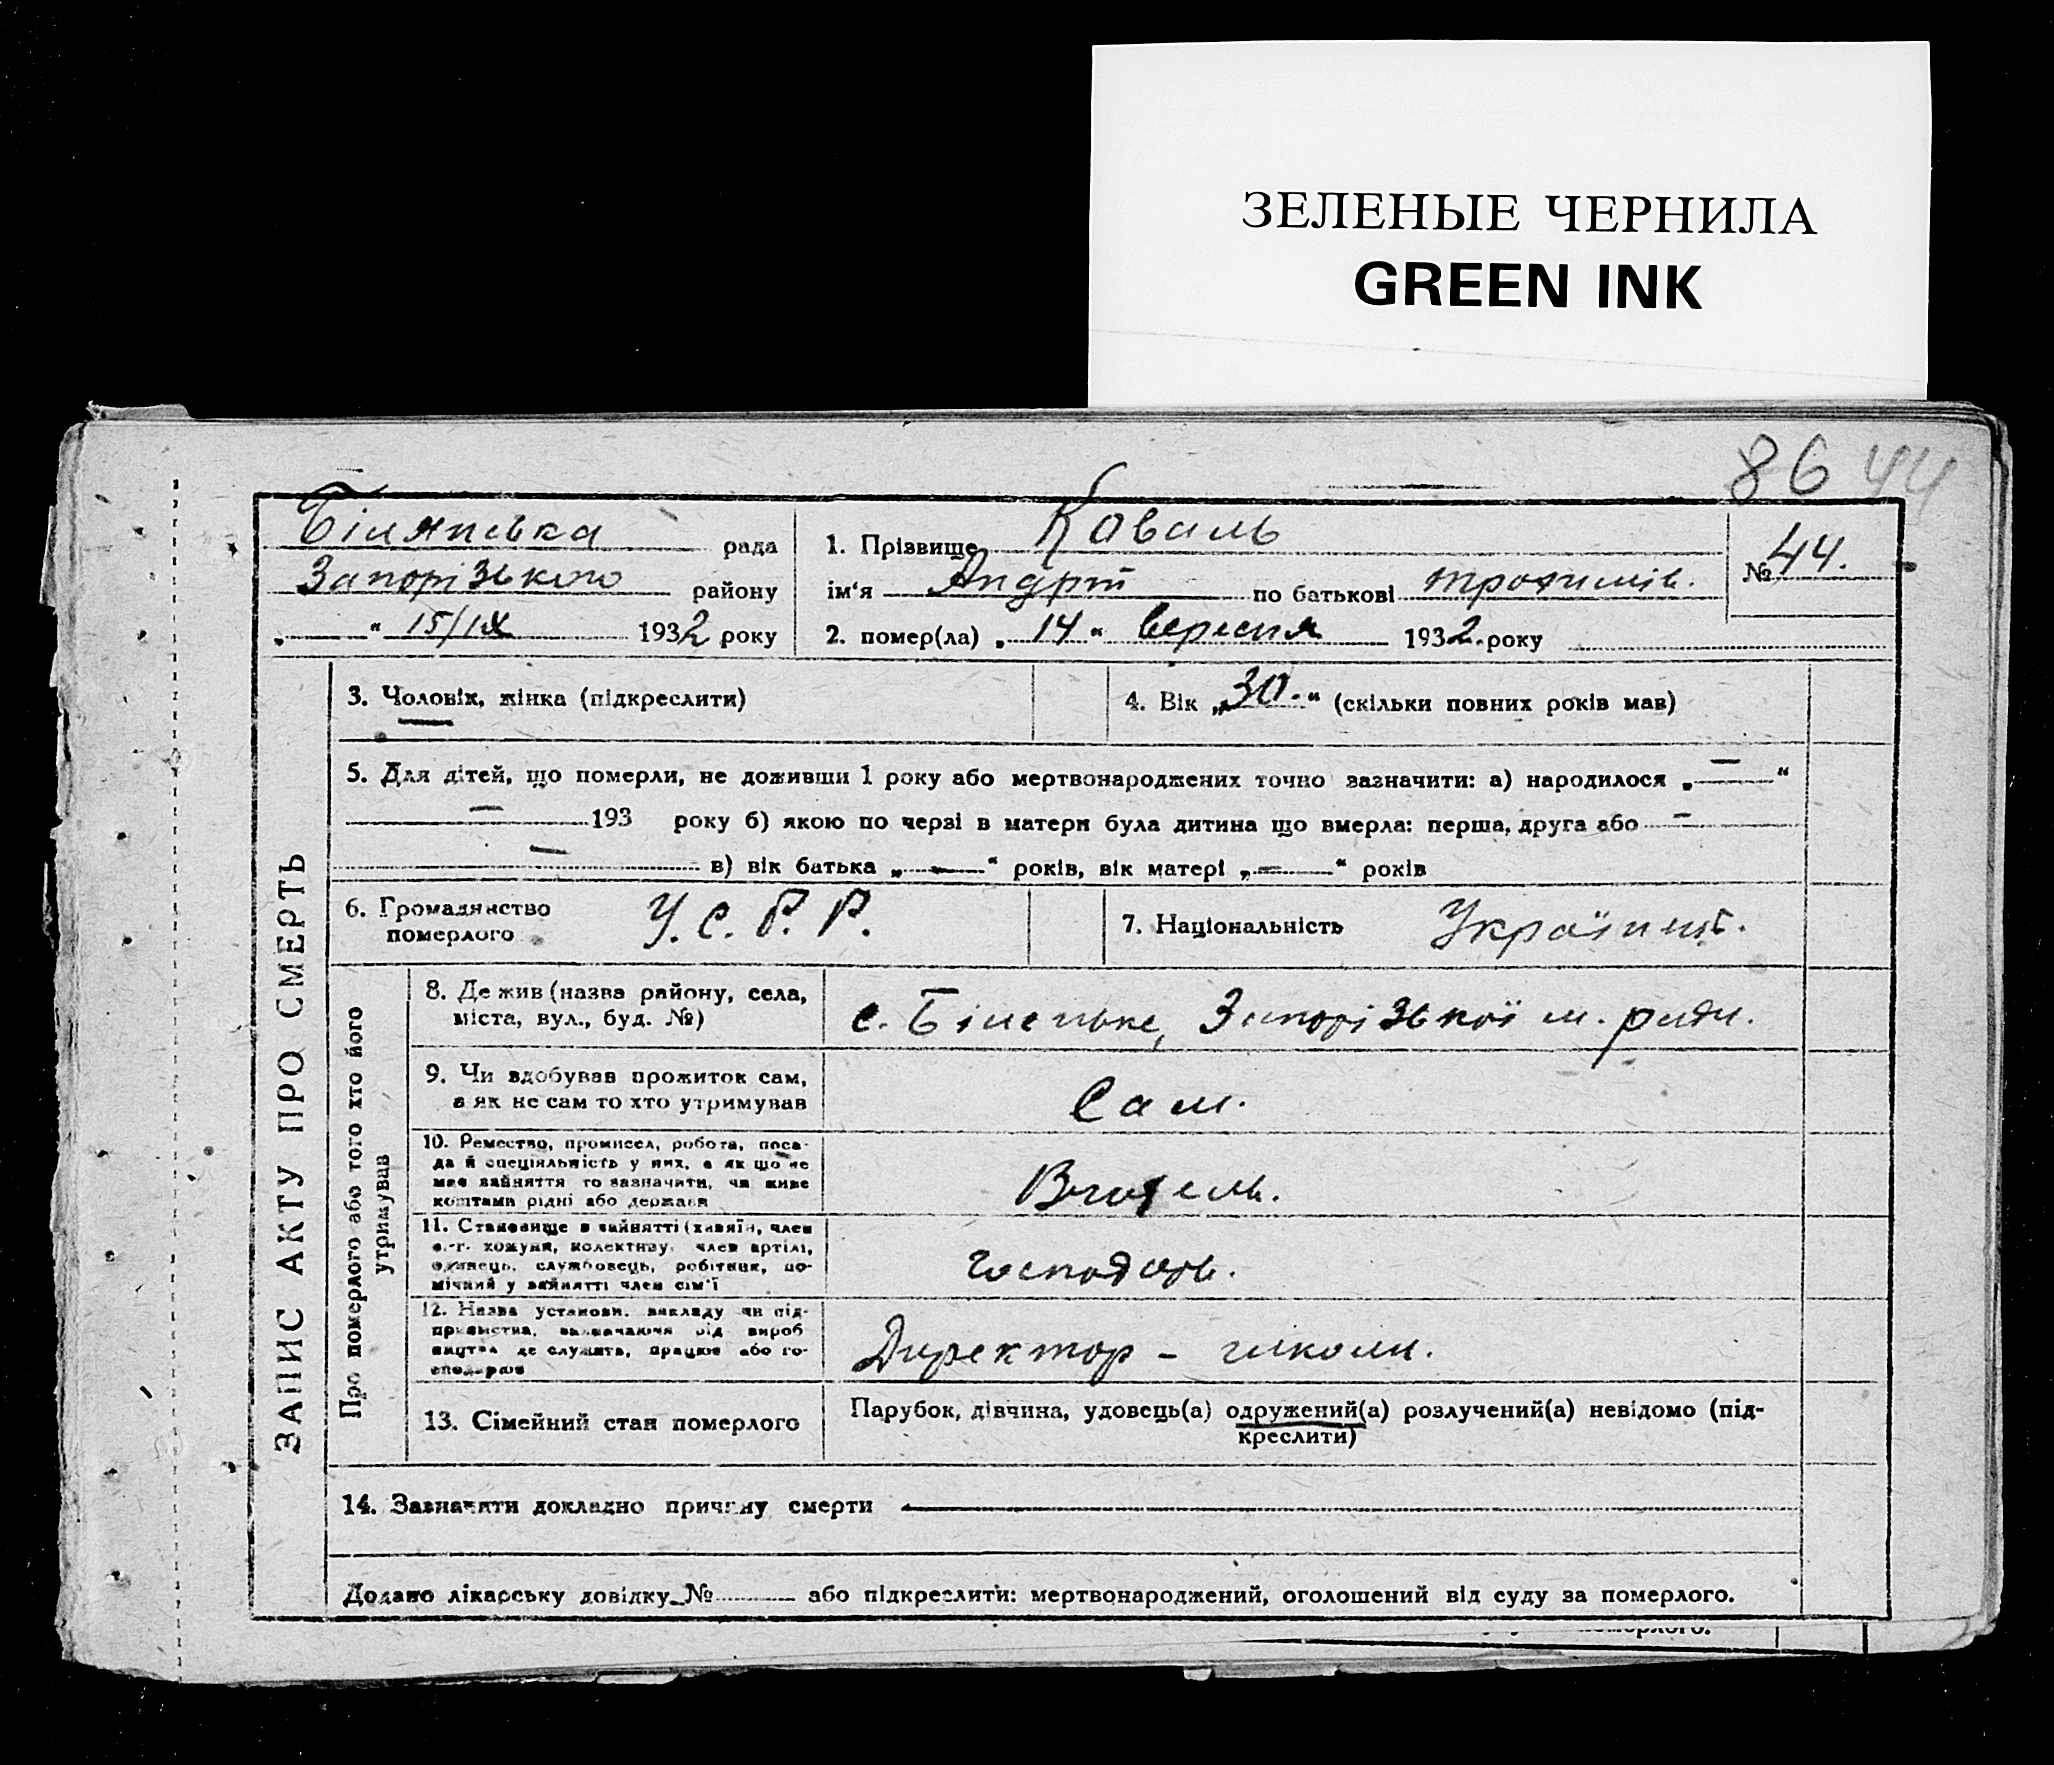 ЗЕЛЕНЫЕ ЧЕРНИЛА
GREEN INK
86 44
Білянська рада
Запорізького району
„ “ 15/IX 1932 року
1. Прізвище Коваль
ім‘я Андрій по батькові Трохимів.
2. помер(ла) „ 14 “ вересня 1932. року
№ 44.
ЗАПИС АКТУ ПРО СМЕРТЬ
3. Чоловік, жінка (підкреслити)
4. Вік „30.“ (скільки повних років мав)
5. Для дітей, що померли, не доживши 1 року або мертвонароджених точно зазначити: а) народилося „ — “
— 193 року б) якою по черзі в матери була дитина що вмерла: перша, друга або —
— в) вік батька „ — “ років, вік матері „ — “ років
6. Громадянство
померлого
У.С.Р.Р.
7. Національність Українець.
Про померлого або того хто його
утримував
8. Де жив (назва району, села,
міста, вул., буд. №)
с. Біленьке, Запорізької м. ради.
9. Чи здобував прожиток сам,
а як не сам то хто утримував
Сам.
10. Ремество, промисел, робота, поса-
да й спеціяльність у них, а як що не
мав зайняття то зазначити, чи живе
коштами рідні або держави
Вчитель.
11. Становище в зайнятті (хазяїн, член
с.-г. комуни, колективу, член артілі,
одинець, службовець, робітник, по-
мічний у зайнятті член сім‘ї
Господарь.
12. Назва установи, закладу чи під-
приємства, зазначаючи рід вироб
ництва де служить, працює або го-
сподарює
Директор – школи.
13. Сімейний стан померлого
Парубок, дівчина, удовець(а) одружений(а) розлучений(а) невідомо (під-
креслити)
14. Зазначити докладно причину смерти
Додано лікарську довідку № або підкреслити: мертвонароджений, оголошений від суду за померлого.
померлого.